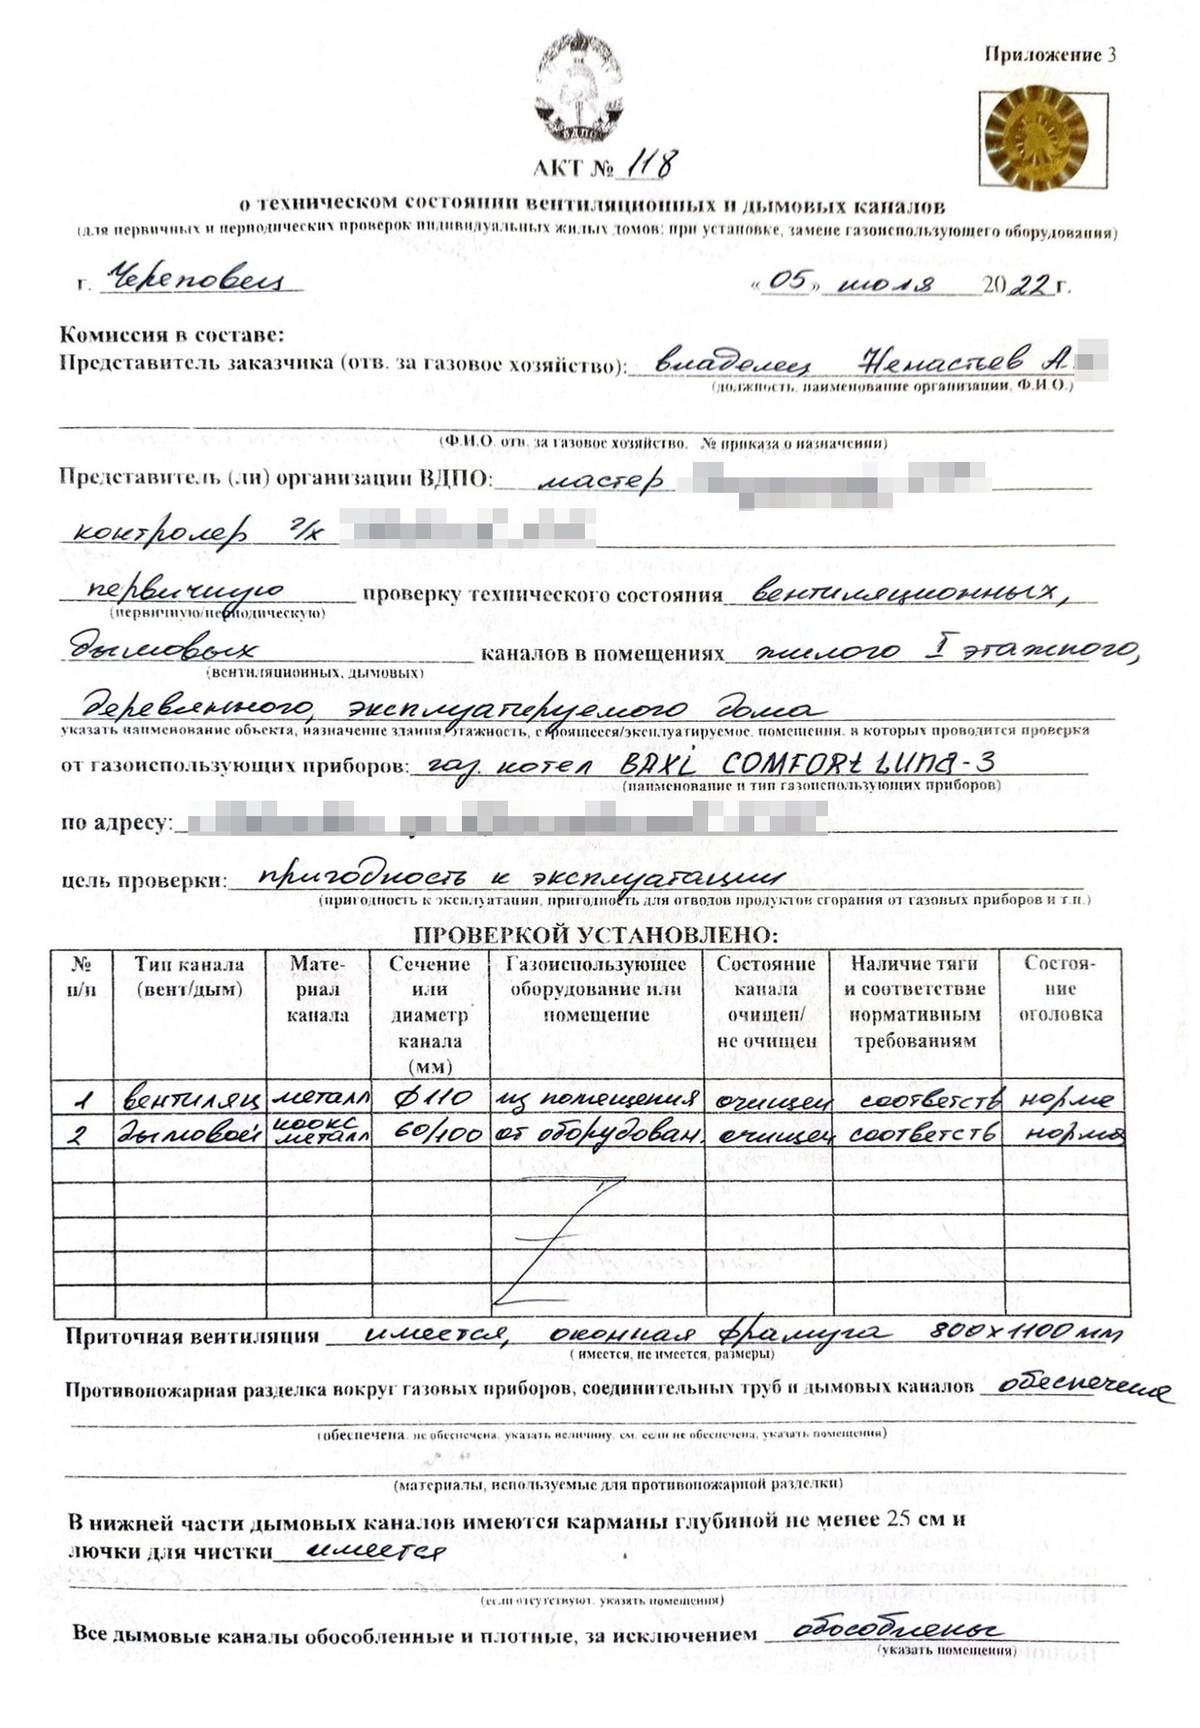 Приложение 3
ВДПО
АКТ № 118
о техническом состоянии вентиляционных и дымовых каналов
(для первичных и периодических проверок индивидуальных жилых домов; при установке, замене газоиспользующего оборудования)
г. Череповец «05» июля 2022 г.
Комиссия в составе:
Представитель заказчика (отв. за газовое хозяйство): владелец Ненастьев А.
(должность, наименование организации, Ф.И.О.)
(Ф.И.О. отв. за газовое хозяйство, № приказа о назначении)
Представитель (ли) организации ВДПО: мастер
контролер г/х
первичную проверку технического состояния вентиляционных,
(первичную/периодическую)
дымовых каналов в помещениях жилого I этажного,
(вентиляционных, дымовых)
деревянного, эксплуатируемого дома
указать наименование объекта, назначение здания, этажность, строящееся/эксплуатируемое, помещения, в которых проводится проверка
от газоиспользующих приборов: газ. котел BAXI COMFORT LUNA-3
(наименование и тип газоиспользующих приборов)
по адресу:
цель проверки: пригодность к эксплуатации
(пригодность к эксплуатации, пригодность для отводов продуктов сгорания от газовых приборов и т.п.)
ПРОВЕРКОЙ УСТАНОВЛЕНО:
№ Тип канала Мате- Сечение Газоиспользующее Состояние Наличие тяги Состоя-
п/п (вент/дым) риал или оборудование или канала и соответствие ние
канала диаметр помещение очищен/ нормативным оголовка
канала не очищен требованиям
(мм)
1 вентиляц металл Ф110 из помещения очищен соответств норма
2 дымовой коакс металл 60/100 от оборудован. очищен соответств норма
Приточная вентиляция имеется, оконная фрамуга 800х1100мм
(имеется, не имеется, размеры)
Противопожарная разделка вокруг газовых приборов, соединительных труб и дымовых каналов обеспечена
(обеспечена, не обеспечена, указать величину, см, если не обеспечена, указать помещения)
(материалы, используемые для противопожарной разделки)
В нижней части дымовых каналов имеются карманы глубиной не менее 25 см и
лючки для чистки имеется
(если отсутствуют, указать помещения)
Все дымовые каналы обособленные и плотные, за исключением обособлены
(указать помещения)